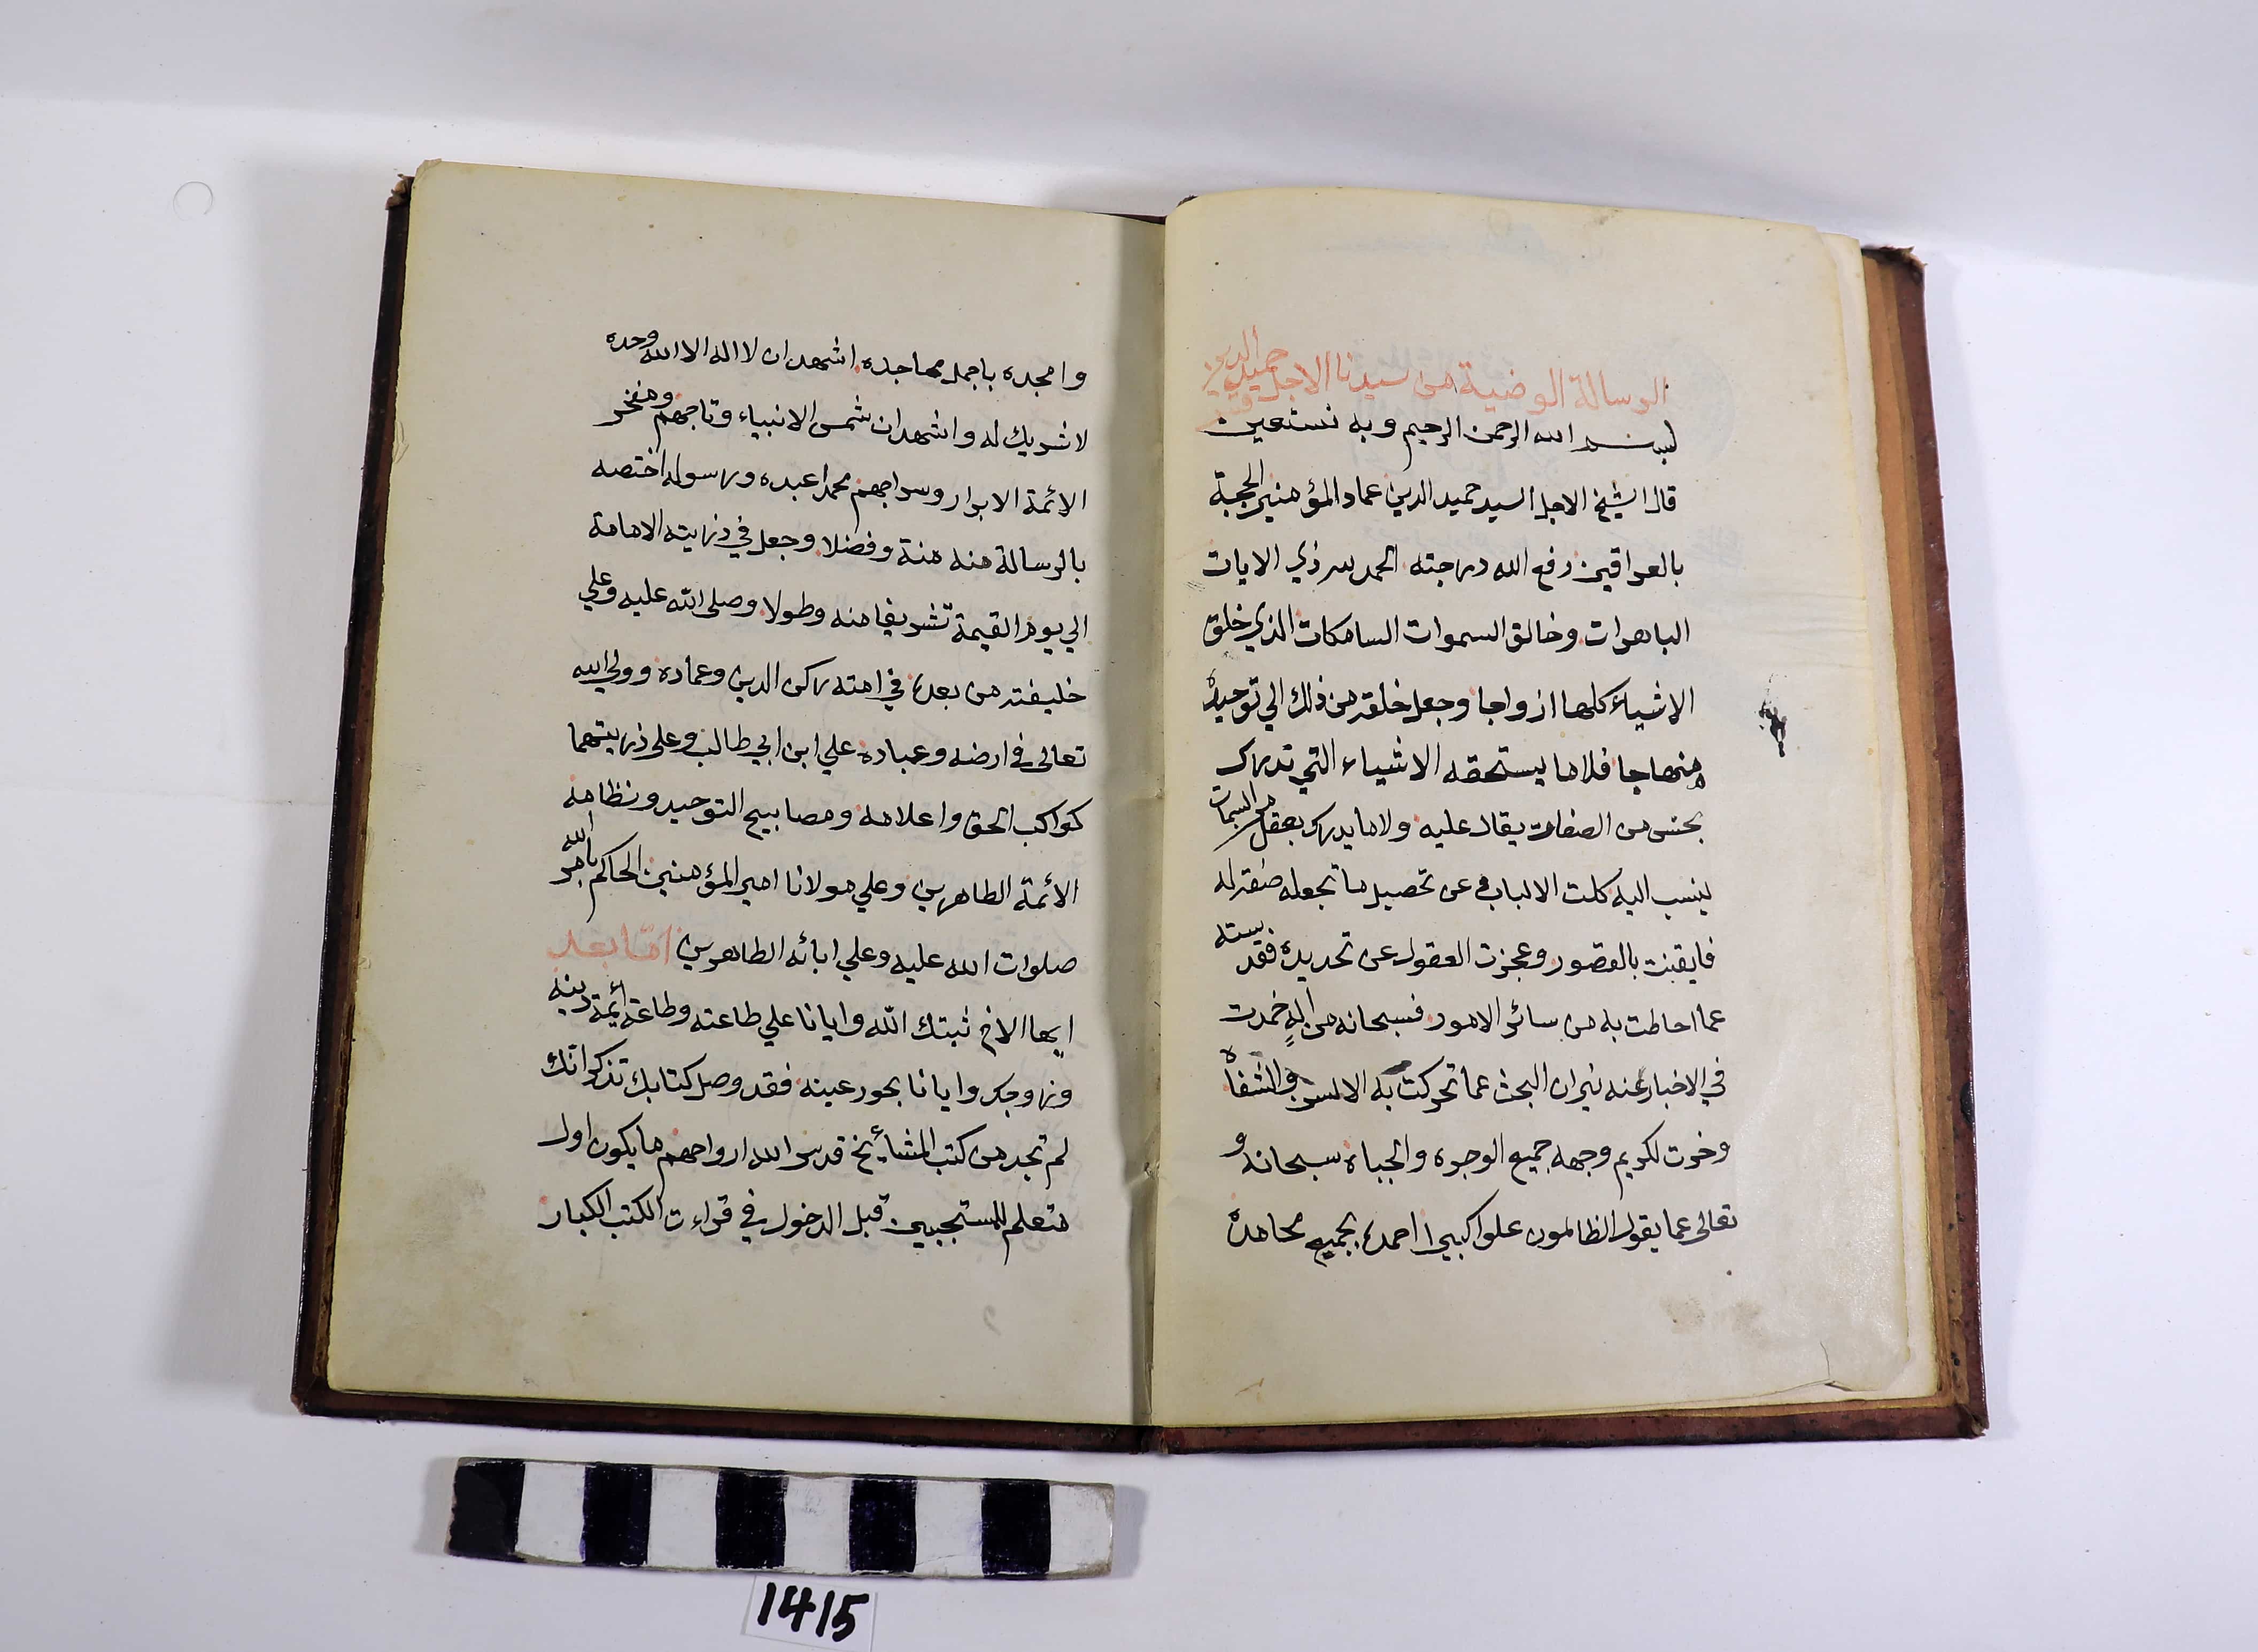 الرسالة الوضية من سيدنا الاجل حميد الدين
بسم الله الرحمن الرحيم وبه نستعين
قال الشيخ الاجل السيد حميد الدين عماد المؤمنين الحجة
بالعراقين رفع الله درجته الحمد لله ذي الايات
الباهرات وخالق السموات السامكات الذي خلق
الاشياء كلها ازواجا وجعل خلقه من ذلك الي توحيده
منهاجا فلا ما يستحقه الاشياء التي تدرك
بحسٍ من الصفات يقال عليه ولا ما يدرك بعقل من السمات
ينسب اليه كلت الالباب عن تحصيل ما تجعله صفة له
فايقنت بالقصور وعجزت العقول عن تحديده فقدسته
عما احاطت به من سائر الامور فسبحانه من الهٍ خمدت
في الاخبار عنه نيران البحث عما تحركت به الالسن والشفاه
وخرت لكريم وجهه جميع الوجوه والجباه سبحانه و
تعالى عما يقول الظالمون علوا كبيرا احمده بجميع محامده
وامجده باجمل مماجده اشهد ان لا اله الا الله وحده
لا شريك له واشهد ان شمس الانبياء وتاجهم ومفخر
الائمة الابرار وسراجهم محمدا عبده ورسوله اختصه
بالرسالة منه منة وفضلا وجعل في ذريته الامامة
الي يوم القيمة تشريفا منه وطولا وصلى الله عليه وعلي
خليفته من بعده في امته ركن الدين وعماده وولي الله
تعالى في ارضه وعباده علي ابن ابي طالب وعلى ذريتهما
كواكب الحق واعلامه ومصابيح التوحيد ونظامه
الائمة الطاهرين وعلي مولانا امير المؤمنين الحاكم بامر الله
صلوات الله عليه وعلي ابائه الطاهرين امّا بعد
ايها الاخ ثبتك الله وايانا علي طاعته وطاعة ائمة دينه
وزوجك وايانا بحور عينه فقد وصل كتابك تذكر انك
لم تجد من كتب المشائخ قدس الله ارواحهم ما يكون اول
متعلم للمستجيبين قبل الدخول في قراءت الكتب الكبار
1415